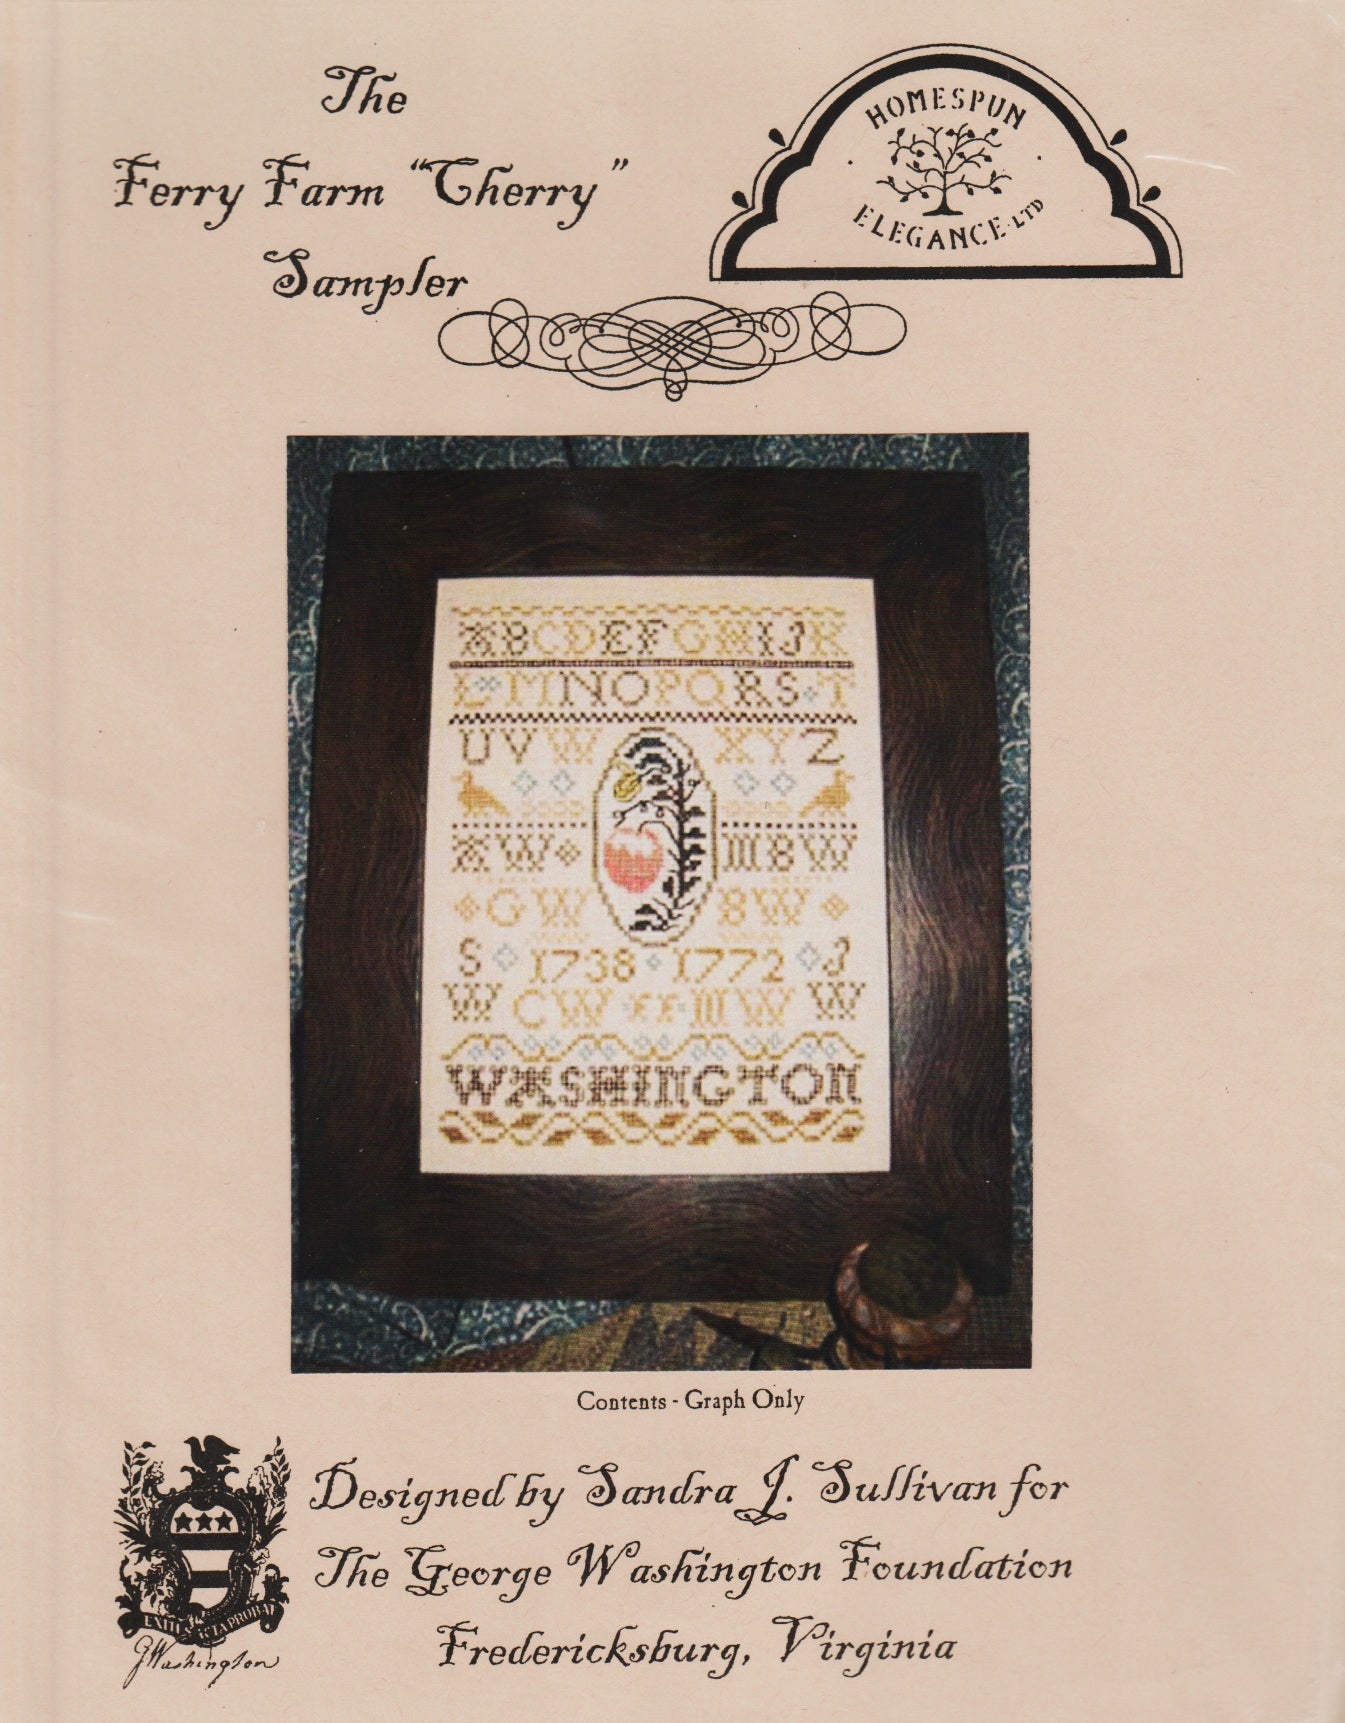 The
Ferry Farm "Cherry"
Sampler
HOMESPUN
ELEGANCE LTD
ABCDEFGHIJK
LMNOPQRST
UVW XYZ
AW MBW
GW BW
S 1738 1772 J
W CW MW W
WASHINGTON
Contents - Graph Only
Designed by Sandra J. Sullivan for
The George Washington Foundation
Fredericksburg, Virginia
EXITUS ACTA PROBAT
GWashington